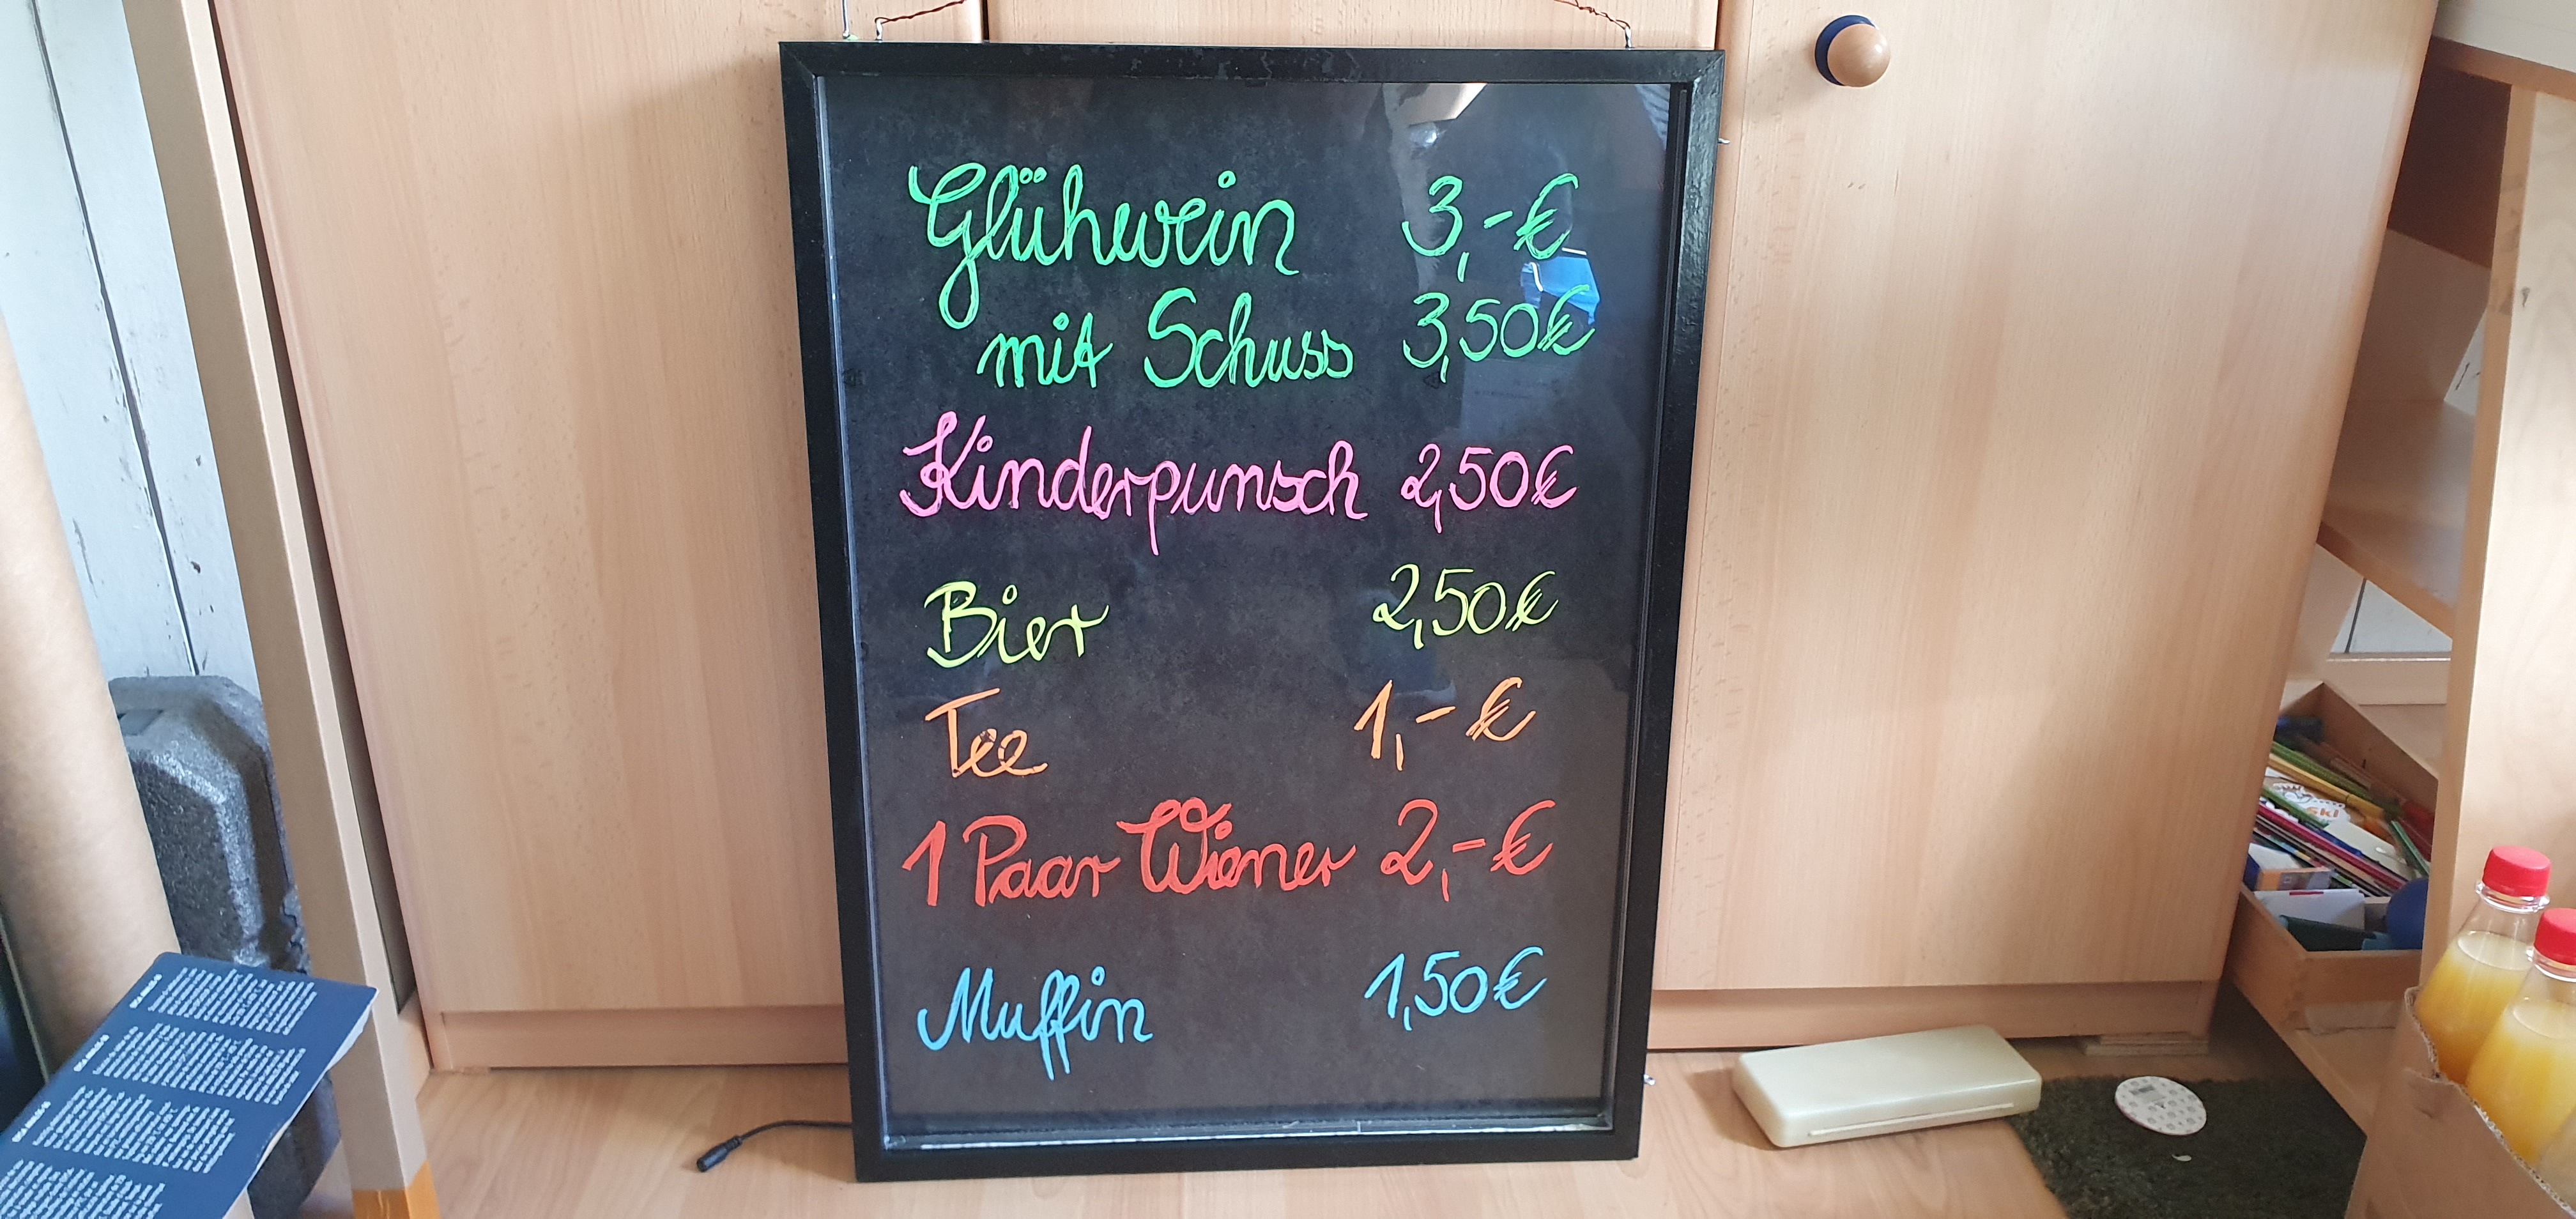 Glühwein 3,-€
mit Schuss 3,50€
Kinderpunsch 2,50€
Bier 2,50€
Tee 1,-€
1 Paar Wiener 2,-€
Muffin 1,50€